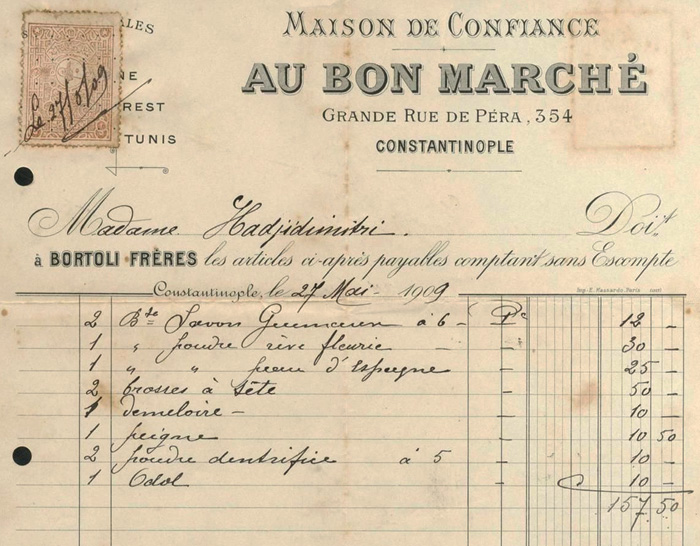 MAISON DE CONFIANCE
AU BON MARCHÉ
GRANDE RUE DE PÉRA, 354
CONSTANTINOPLE
TUNIS
Le 27/5/09
Madame Hadjidimitri. Doit
à BORTOLI FRÈRES les articles ci-après payables comptant sans Escompte
Constantinople, le 27 Mai 1909
2 Bte Savon à 6 — 12 —
1 " poudre rêve fleurie — — 30 —
1 " " peau d'Espagne — 25 —
2 brosses à tête — 50 —
1 demeloire — — 10 —
1 peigne — 10 50
2 poudre dentrifice à 5 — 10 —
1 Odol — 10 —
157 50